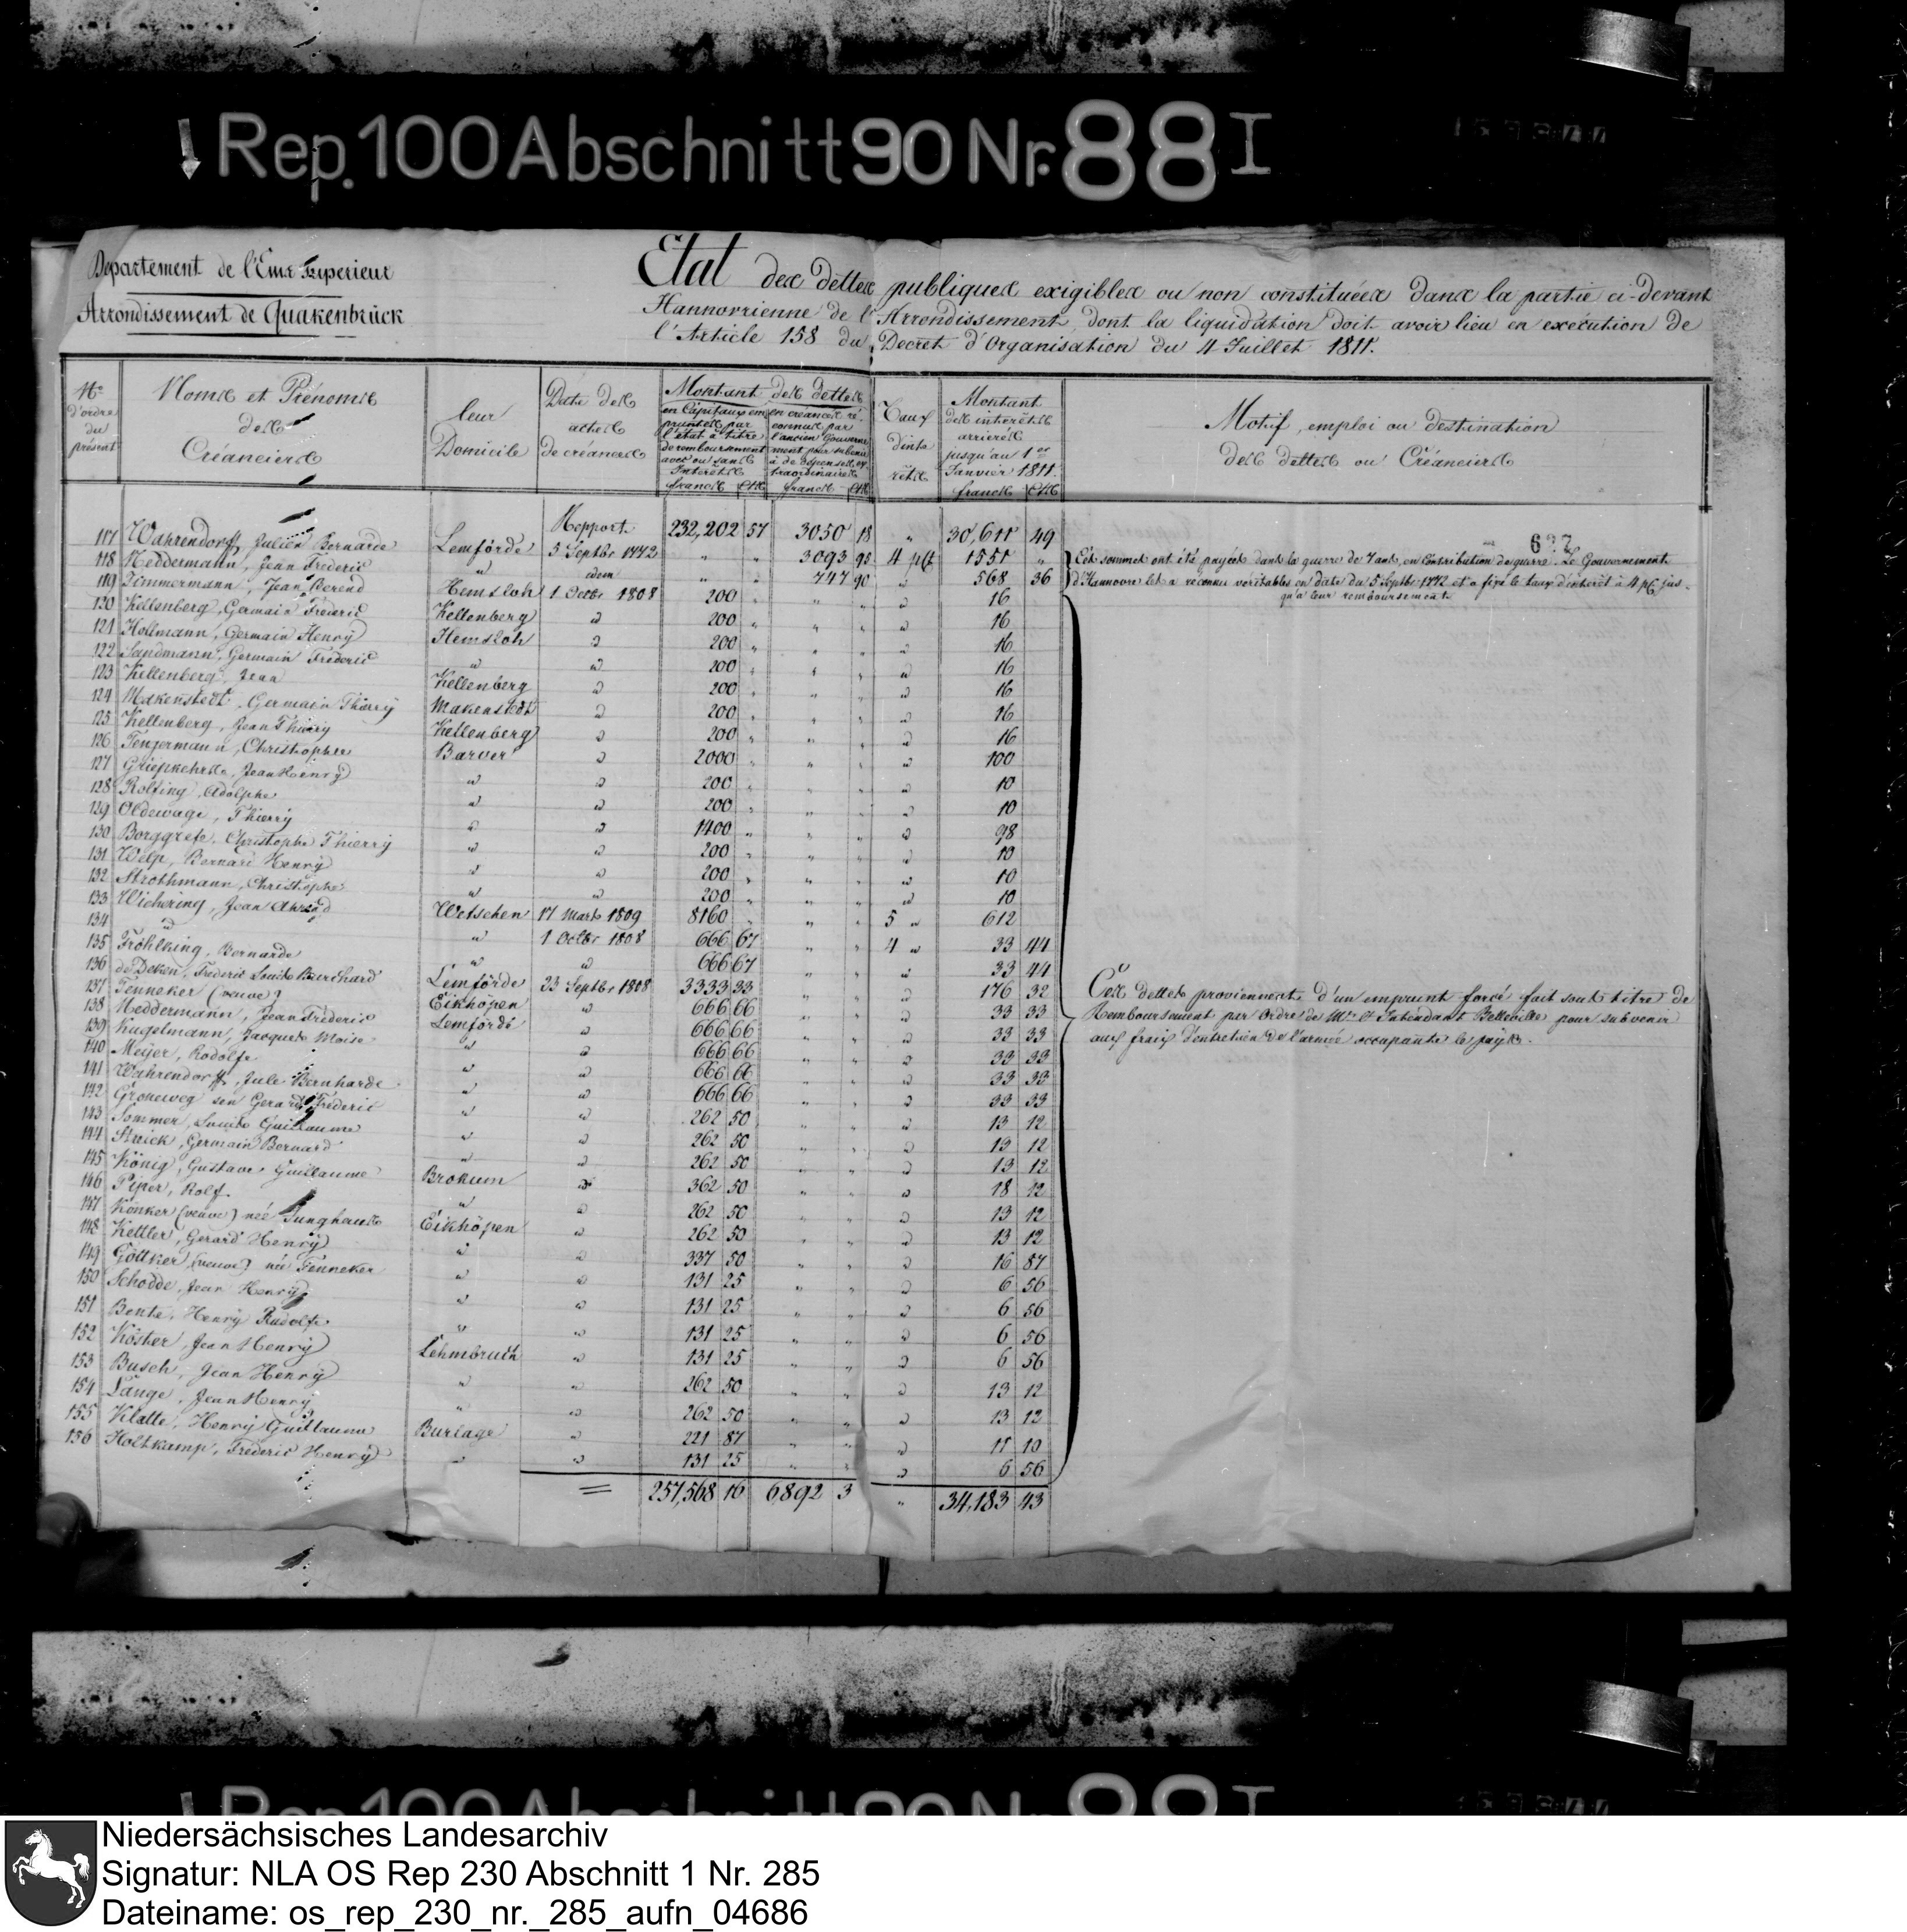 Rep. 100 Abschnitt 90 Nr. 88 I
Departement de l'Ems Superieur
Arrondissement de Quakenbrück
Etat des dettes publiques exigibles ou non constituées dans la partie ci-devant
Hannovrienne de l'Arrondissement, dont la liquidation doit avoir lieu en exécution de
l'Article 158 du Decret d'Organisation du 4 Juillet 1811.
Nos d'ordre du présent
Noms et Prénoms des Créanciers
leur Domicile
Date des actes de créances
Montant des dettes
en Capitaux empruntés par l'état à titre de remboursement avec ou sans Intérêts
francs Cts
en créances reconnus par l'ancien Gouvernement pour subvenir à de dépenses extraordinaires
francs Cts
Taux d'intérêts
Montant des intérêts arrierés jusqu'au 1er Janvier 1811.
francs Cts
Motif, emploi ou destination
des dettes ou Créanciers
Repport 232,202 57 3050 18 " 30,611 49
117 Wahrendorff, Julien Bernarde Lemförde 5 Septbr 1772 " " 3093 95 4 pCt 1551 "
118 Meddermann, Jean Frederic " idem " " 747 90 " 568 36
119 Zimmermann, Jean Berend Hemsloh 1 Octbr 1808 200 " " " 16
130 Kellenberg, Germain Frederic Kellenberg " 200 " " " " 16
121 Hollmann, Germain Henry Hemsloh " 200 " " " " 16
122 Sandmann, Germain Frederic " " 200 " " " " 16
123 Kellenberg, Jean Kellenberg " 200 " " " " 16
124 Makenstedt, Germain Thierry Makenstedt " 200 " " " " 16
125 Kellenberg, Jean Thierry Kellenberg " 200 " " " " 16
126 Tengermann, Christopher Barver " 2000 " " " " 100
127 Griepkehrs, Jean Henry " " 200 " " " " 10
128 Rolfing, Adolphe " " 200 " " " " 10
129 Oldewage, Thierry " " 1400 " " " " 98
130 Borggrefe, Christophe Thierry " " 200 " " " " 10
131 Welp, Bernard Henry " " 200 " " " " 10
132 Strothmann, Christophe " " 200 " " " " 10
133 Wichering, Jean Ahrend Wetschen 17 Mars 1809 8160 " " " 5 " 612
134 " " 1 Octbr 1808 666 67 " " 4 " 33 44
135 Fröhlking, Bernarde " " 666 67 " " " 33 44
136 de Deken, Frederic Louis Burchard Lemförde 23 Septbr 1808 3333 33 " " " 176 32
137 Tenneker (veuve) Eikhöpen " 666 66 " " " 33 33
138 Meddermann, Jean Frederic Lemförde " 666 66 " " " 33 33
139 Kugelmann, Jacques Moise " " 666 66 " " " 33 33
140 Meijer, Rodolfe " " 666 66 " " " 33 33
141 Wahrendorff, Jule Bernharde " " 666 66 " " " 33 33
142 Groneweg sen Gerard Frederic " " 262 50 " " " 13 12
143 Sommer, Louis Guillaume " " 262 50 " " " 13 12
144 Struck, Germain Bernard " " 262 50 " " " 13 12
145 König, Gustave Guillaume Brokum " 362 50 " " " 18 12
146 Piper, Rolf " " 262 50 " " " 13 12
147 Könker (veuve) née Junghaus Eikhöpen " 262 50 " " " 13 12
148 Kettler, Gerard Henry " " 337 50 " " " 16 87
149 Göttker (veuve) née Tenneker " " 131 25 " " " 6 56
150 Schodde, Jean Henry " " 131 25 " " " 6 56
151 Bente, Henry Rudolfe " " 131 25 " " " 6 56
152 Köster, Jean Henry Lehmbruch " 131 25 " " " 6 56
153 Busch, Jean Henry " " 262 50 " " " 13 12
154 Lange, Jean Henry " " 262 50 " " " 13 12
155 Klatte, Henry Guillaume Burlage " 221 87 " " " 11 10
156 Holtkamp, Frederic Henry " " 131 25 " " " 6 56
257,568 16 6892 3 " 34,183 43
Ces sommes ont été payées dans la guerre de 7 ans, en Contribution de guerre. Le Gouvernement
d'Hannovre les a reconnus veritables en date du 5 Septbr 1772 et a fixé le taux d'interet à 4 pC jus-
qu'à leur remboursement
Ces dettes proviennent d'un emprunt forcé fait sous titre de
Remboursement par Ordre de Mr l'Intendant Belleville pour subvenir
aux fraix d'entretien de l'armée occupante le païs.
Rep. 100 Abschnitt 90 Nr. 88 I
Niedersächsisches Landesarchiv
Signatur: NLA OS Rep 230 Abschnitt 1 Nr. 285
Dateiname: os_rep_230_nr._285_aufn_04686